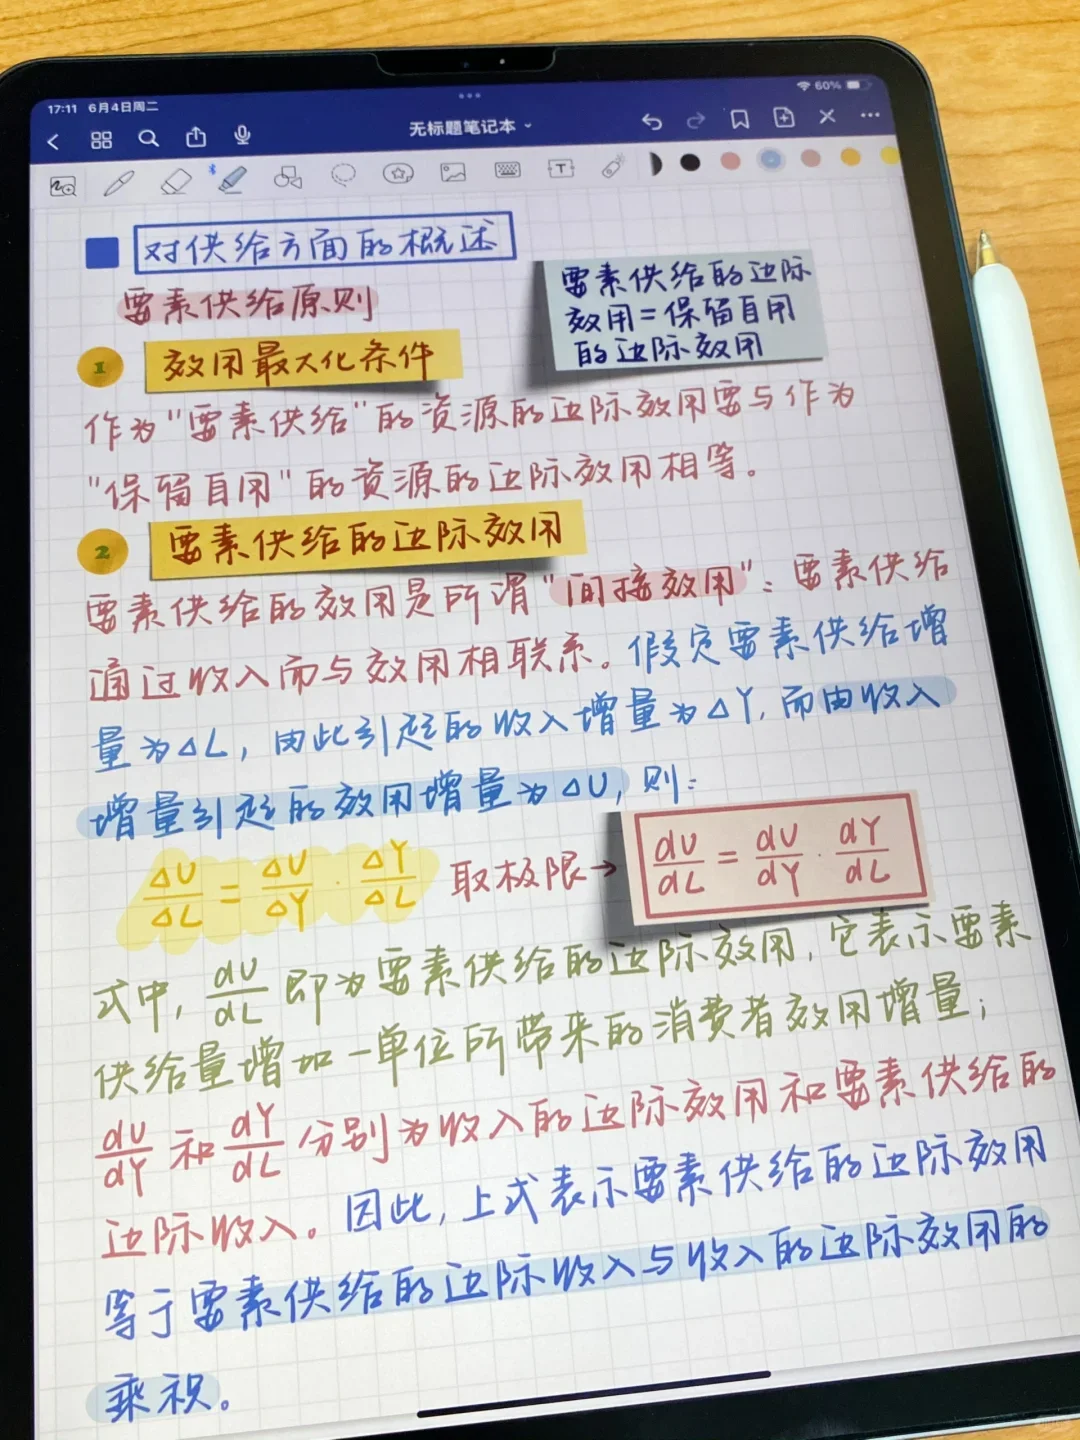 17:11 6月4日周二
60%
无标题笔记本
对供给方面的概述
要素供给原则
要素供给的边际
效用=保留自用
的边际效用
1 效用最大化条件
作为"要素供给"的资源的边际效用要与作为
"保留自用"的资源的边际效用相等。
2 要素供给的边际效用
要素供给的效用是所谓"间接效用"：要素供给
通过收入而与效用相联系。假定要素供给增
量为△L，由此引起的收入增量为△Y，而由收入
增量引起的效用增量为△U，则：
△U/△L = △U/△Y · △Y/△L 取极限→ dU/dL = dU/dY · dY/dL
式中，dU/dL 即为要素供给的边际效用，它表示要素
供给量增加一单位所带来的消费者效用增量；
dU/dY 和 dY/dL 分别为收入的边际效用和要素供给的
边际收入。因此，上式表示要素供给的边际效用
等于要素供给的边际收入与收入的边际效用的
乘积。